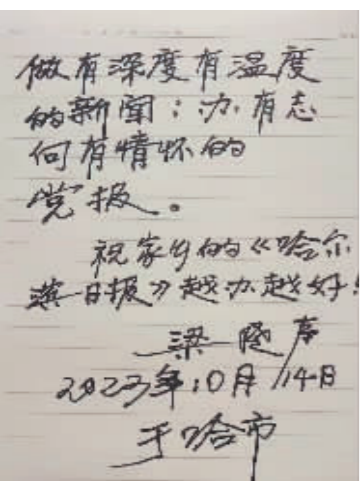 做有深度有温度
的新闻；办有志
向有情怀的
党报。
祝家乡的《哈尔
滨日报》越办越好！
梁晓声
2023年10月14日
于哈市